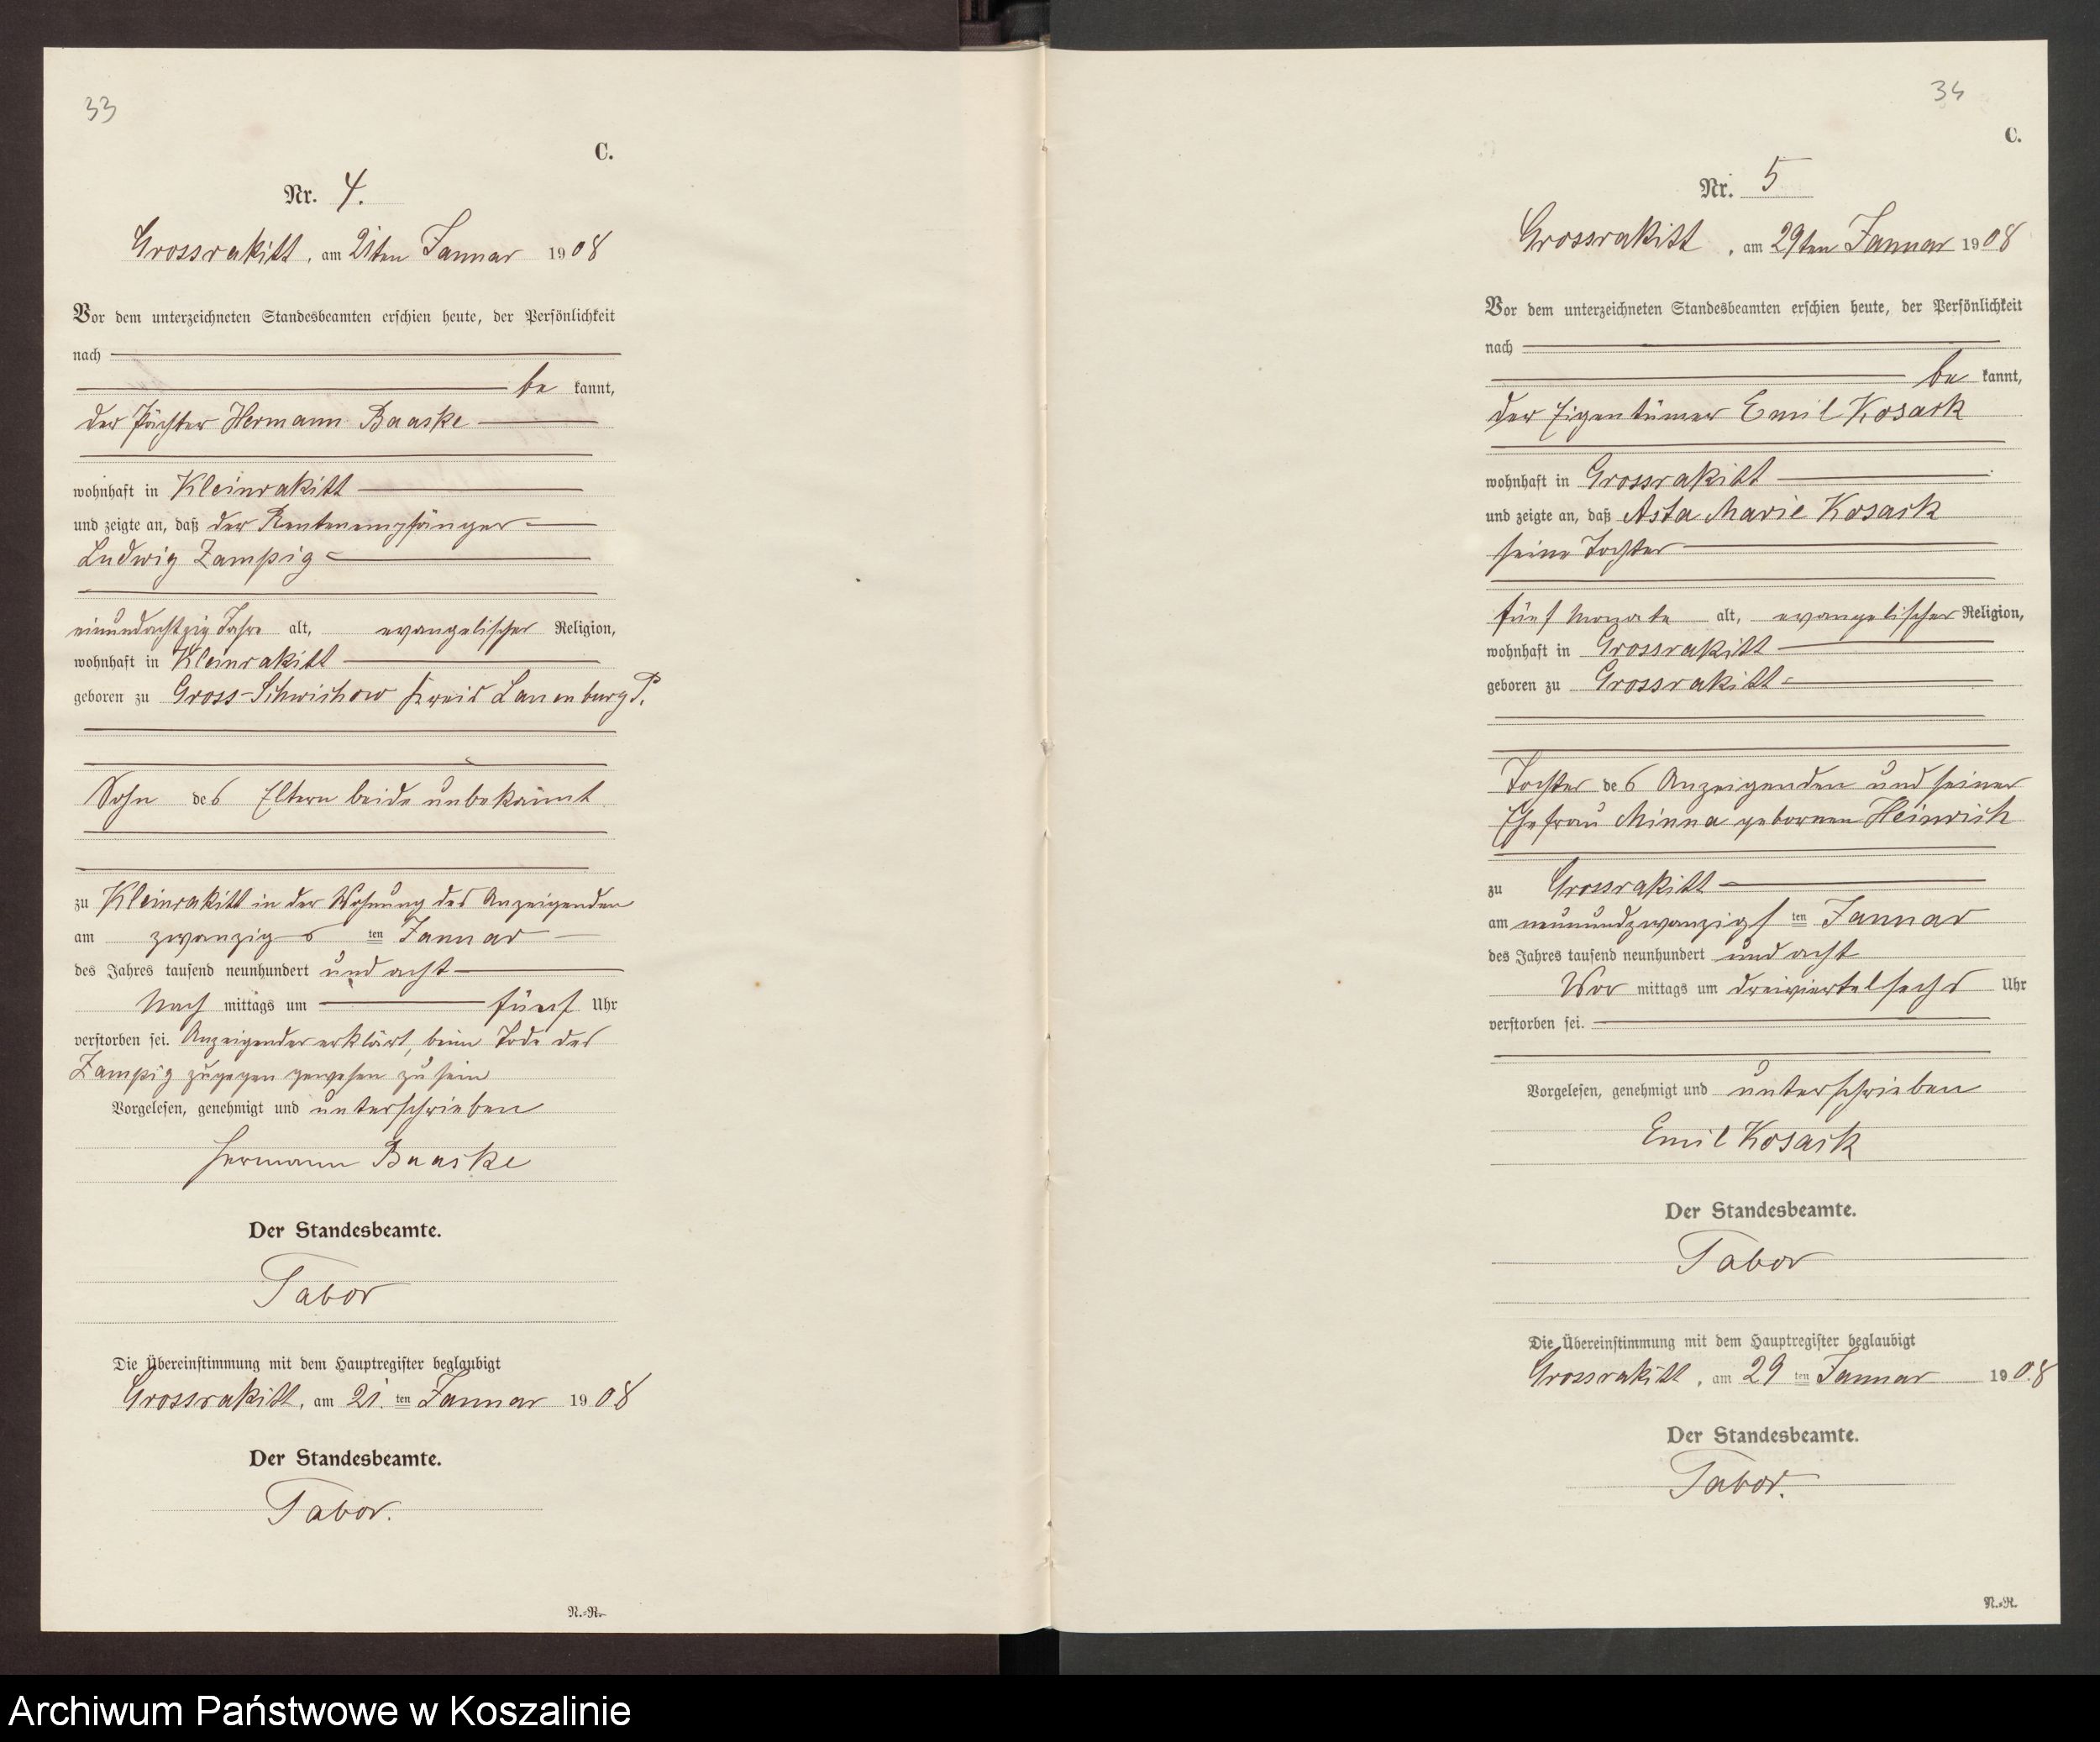 33
C.
Nr. 4.
Grossrakitt, am 21ten Januar 1908
Vor dem unterzeichneten Standesbeamten erschien heute, der Persönlichkeit
nach
be kannt,
der Pächter Hermann Baaske
wohnhaft in Kleinrakitt
und zeigte an, daß der Rentenempfänger
Ludwig Zampig
einundachtzig Jahre alt, evangelischer Religion,
wohnhaft in Kleinrakitt
geboren zu Gross-Schwichow Kreis Lauenburg P.
Sohn des Eltern beide unbekannt
zu Kleinrakitt in der Wohnung des Anzeigenden
am zwanzigs ten Januar
des Jahres tausend neunhundert und acht
Nach mittags um fünf Uhr
verstorben sei. Anzeigender erklärt, beim Tode des
Zampig zugegen gewesen zu sein
Vorgelesen, genehmigt und unterschrieben
Hermann Baaske
Der Standesbeamte.
Tabor
Die Übereinstimmung mit dem Hauptregister beglaubigt
Grossrakitt, am 21. ten Januar 1908
Der Standesbeamte.
Tabor.
N.-R.
34
C.
Nr. 5
Grossrakitt, am 29ten Januar 1908
Vor dem unterzeichneten Standesbeamten erschien heute, der Persönlichkeit
nach
be kannt,
der Eigentümer Emil Kosack
wohnhaft in Grossrakitt
und zeigte an, daß Asta Marie Kosack
seine Tochter
fünf Monate alt, evangelischer Religion,
wohnhaft in Grossrakitt
geboren zu Grossrakitt
Tochter des Anzeigenden und seiner
Ehefrau Minna gebornen Heinrich
zu Grossrakitt
am neunundzwanzigs ten Januar
des Jahres tausend neunhundert und acht
Vor mittags um dreiviertelsechs Uhr
verstorben sei.
Vorgelesen, genehmigt und unterschrieben
Emil Kosack
Der Standesbeamte.
Tabor
Die Übereinstimmung mit dem Hauptregister beglaubigt
Grossrakitt, am 29 ten Januar 1908
Der Standesbeamte.
Tabor.
N.-R.
Archiwum Państwowe w Koszalinie